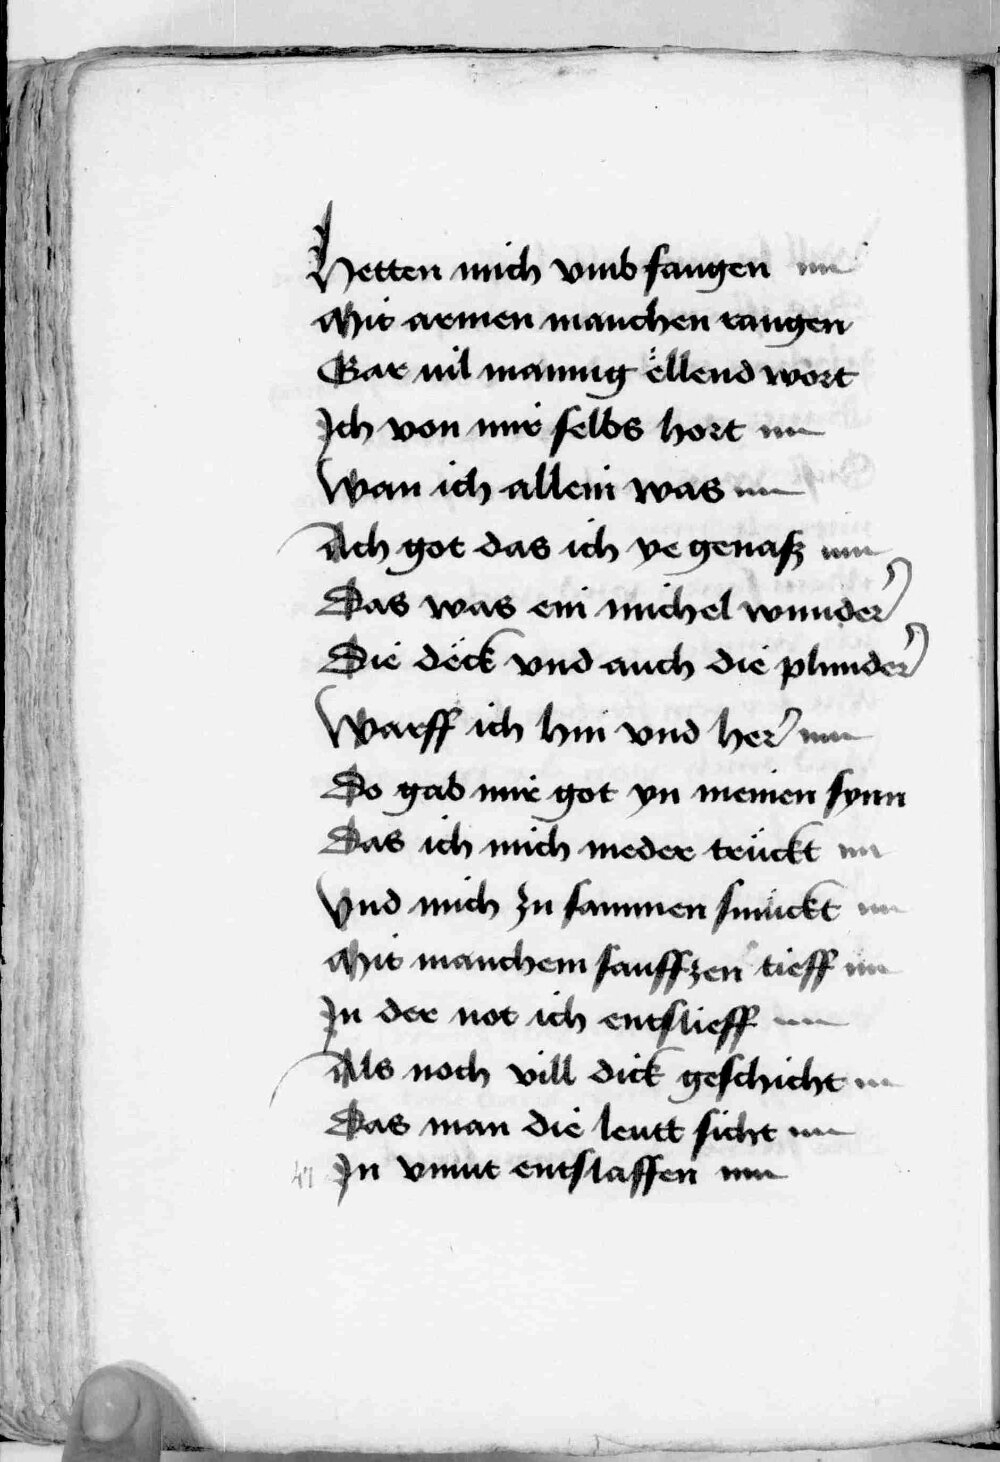 Hetten mich vmb fangen
Mit armen manchen rangen
Gar uil mannig ellend wort
Ich von mir selbs hort
Wan ich allein was
Ach got das ich ye genaß
Das was ein michel wunder
Die deck vnd auch die plunder
Warff ich hin vnd her
Do gab mir got yn meinen synn
Das ich mich nieder trückt
Vnd mich zu sammen smückt
Mit manchem sauffzen tieff
In der not ich entslieff
Als noch vill dick geschicht
Das man die leutt sicht
In vnmut entslaffen